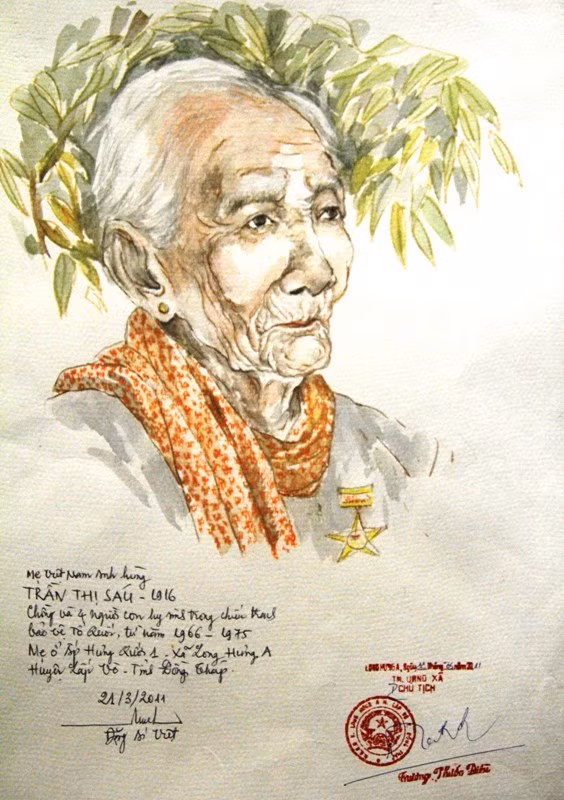 Mẹ Việt Nam anh hùng
TRẦN THỊ SÁU - 1916
Chồng và 4 người con hy sinh trong chiến tranh
bảo vệ Tổ Quốc, từ năm 1966 - 1975
Mẹ ở ấp Hưng Quới 1 - Xã Long Hưng A
Huyện Lấp Vò - Tỉnh Đồng Tháp.
21/3/2011
Đặng Ái Việt
LONG HƯNG A, Ngày tháng năm 2011
TM. UBND XÃ
CHỦ TỊCH